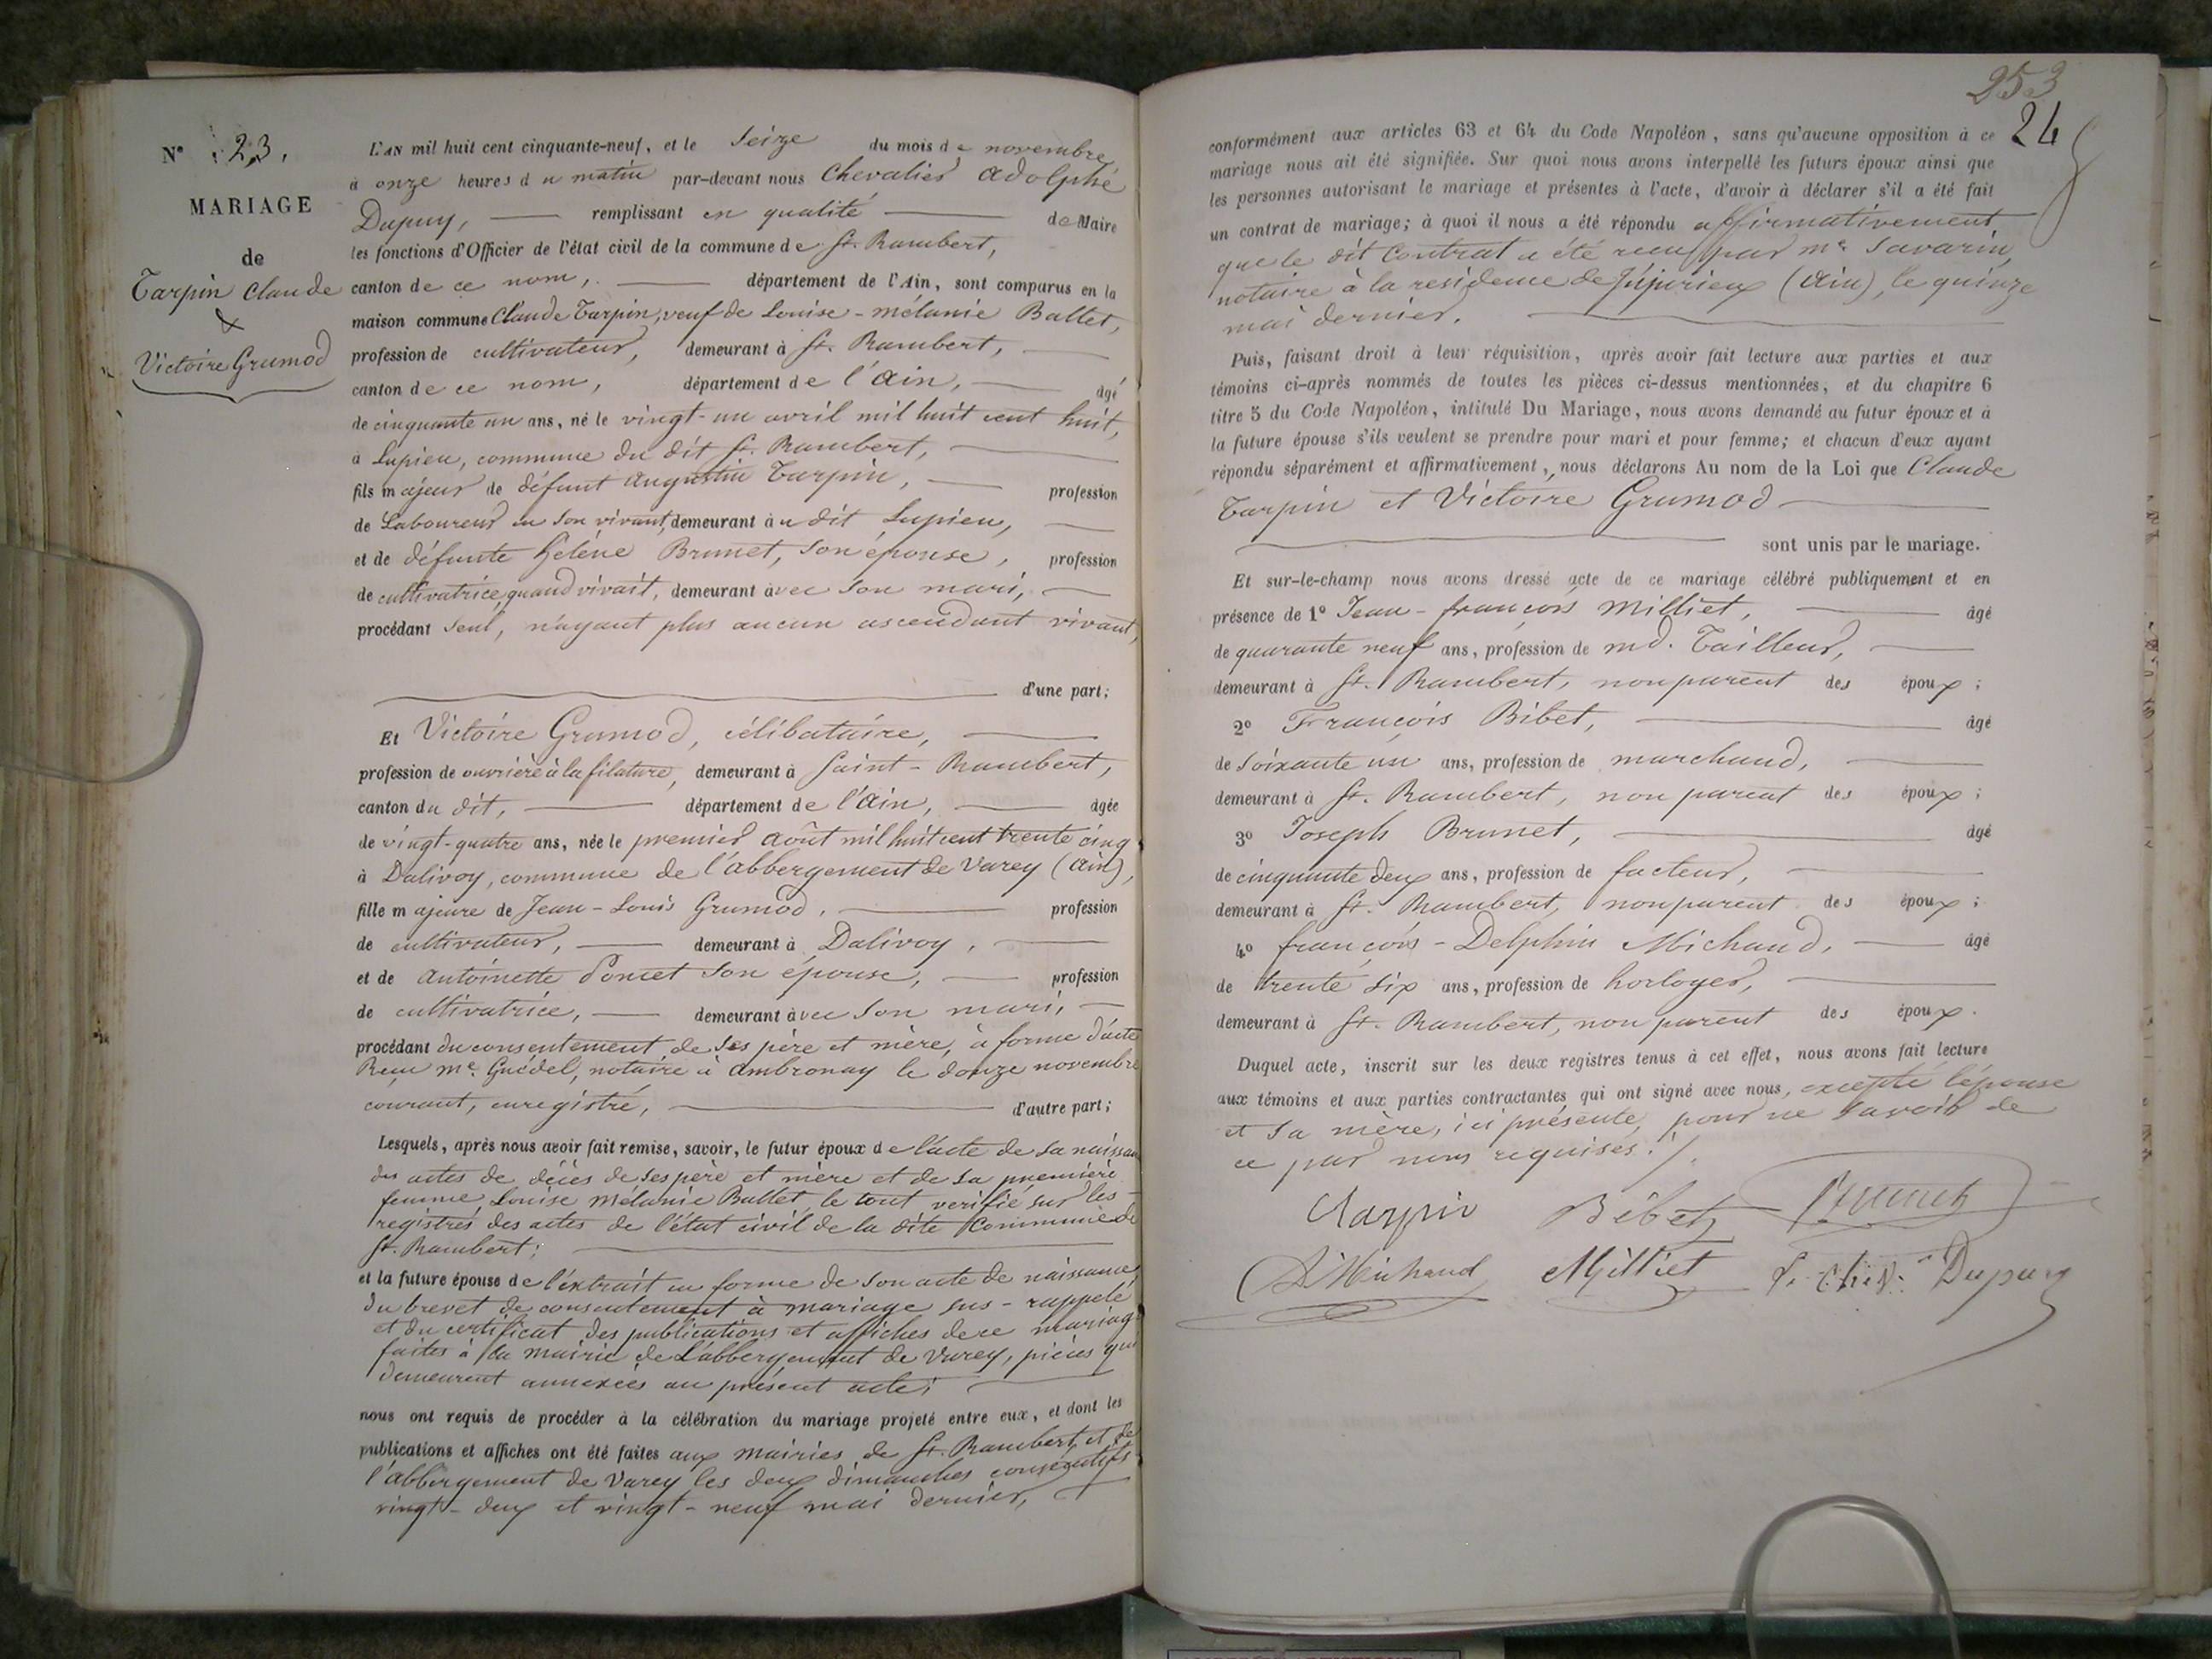 N° 23.
MARIAGE
de
Tarpin Claude
&
Victoire Grumod
L'AN mil huit cent cinquante-neuf, et le Seize du mois de novembre,
à onze heures du matin par-devant nous Chevalier Adolphe
Dupuy, remplissant en qualité de Maire
les fonctions d'Officier de l'état civil de la commune de St. Rambert,
canton de ce nom, département de l'Ain, sont comparus en la
maison commune Claude Tarpin, veuf de Louise-mélanie Ballet,
profession de cultivateur, demeurant à St. Rambert,
canton de ce nom, département de l'Ain, âgé
de cinquante un ans, né le vingt-un avril mil huit cent huit,
à Lupieu, commune du dit St. Rambert,
fils majeur de défunt Augustin Tarpin, profession
de Laboureur en son vivant, demeurant au dit Lupieu,
et de défunte Hélène Brunet, son épouse, profession
de cultivatrice, quand vivait, demeurant avec son mari,
procédant seul, n'ayant plus aucun ascendant vivant,
d'une part;
Et Victoire Grumod, célibataire,
profession de ouvrière à la filature, demeurant à Saint-Rambert,
canton du dit, département de l'Ain, âgée
de vingt-quatre ans, née le premier août mil huit cent trente cinq
à Dalivoy, commune de l'abbergement de Varey (Ain),
fille majeure de Jean-Louis Grumod, profession
de cultivateur, demeurant à Dalivoy,
et de Antoinette Poncet son épouse, profession
de cultivatrice, demeurant avec son mari,
procédant du consentement de ses père et mère, à forme d'acte
Reçu me. Guédel, notaire à Ambronay le douze novembre
courant, enregistré, d'autre part;
Lesquels, après nous avoir fait remise, savoir, le futur époux de l'acte de sa naissan
des actes de décès de ses père et mère et de sa première
femme, Louise Mélanie Ballet, le tout verifié sur les
registres des actes de l'état civil de la dite Commune de
St. Rambert;
et la future épouse de l'extrait en forme de son acte de naissance,
du brevet de consentement à mariage sus-rappelé
et du certificat des publications et affiches de ce mariage
faites à la mairie de L'abbergement de Varey, pièces qui
demeurent annexées au présent acte;
nous ont requis de procéder à la célébration du mariage projeté entre eux, et dont les
publications et affiches ont été faites aux mairies de St. Rambert et de
l'abbergement de Varey les deux dimanches consécutifs
vingt-deux et vingt-neuf mai dernier,
253
24
conformément aux articles 63 et 64 du Code Napoléon, sans qu'aucune opposition à ce
mariage nous ait été signifiée. Sur quoi nous avons interpellé les futurs époux ainsi que
les personnes autorisant le mariage et présentes à l'acte, d'avoir à déclarer s'il a été fait
un contrat de mariage; à quoi il nous a été répondu affirmativement
que le dit Contrat a été reçu par me Savarin,
notaire à la residence de Jujurieux (Ain), le quinze
mai dernier.
Puis, faisant droit à leur réquisition, après avoir fait lecture aux parties et aux
témoins ci-après nommés de toutes les pièces ci-dessus mentionnées, et du chapitre 6
titre 5 du Code Napoléon, intitulé Du Mariage, nous avons demandé au futur époux et à
la future épouse s'ils veulent se prendre pour mari et pour femme; et chacun d'eux ayant
répondu séparément et affirmativement, nous déclarons Au nom de la Loi que Claude
Tarpin et Victoire Grumod
sont unis par le mariage.
Et sur-le-champ nous avons dressé acte de ce mariage célébré publiquement et en
présence de 1° Jean-françois Milliet, âgé
de quarante neuf ans, profession de md. Tailleur,
demeurant à St. Rambert, non parent des époux;
2° François Bibet, âgé
de soixante un ans, profession de marchand,
demeurant à St. Rambert, non parent des époux;
3° Joseph Brunet, âgé
de cinquante deux ans, profession de facteur,
demeurant à St. Rambert, non parent des époux;
4° françois-Delphin Michaud, âgé
de trente six ans, profession de horloger,
demeurant à St. Rambert, non parent des époux.
Duquel acte, inscrit sur les deux registres tenus à cet effet, nous avons fait lecture
aux témoins et aux parties contractantes qui ont signé avec nous, excepté l'épouse
et sa mère, ici présente, pour ne savoir de
ce par nous requises./.
Tarpin Bibet Brunet
D Michaud Milliet Le Chev. Dupuy